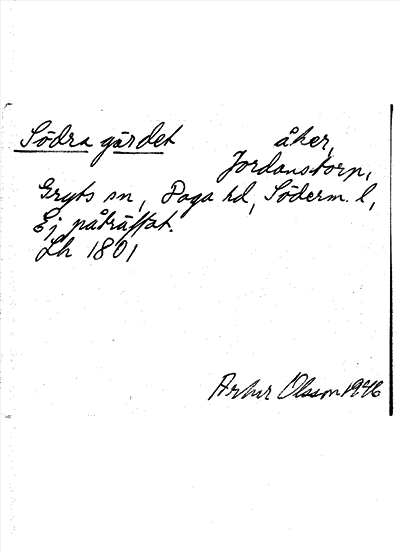 Södra gärdet åker,
Jordanstorp,
Gryts sn, Daga hd, Söderm. l,
Ej påträffat.
Lh 1801
Artur Olsson 1946